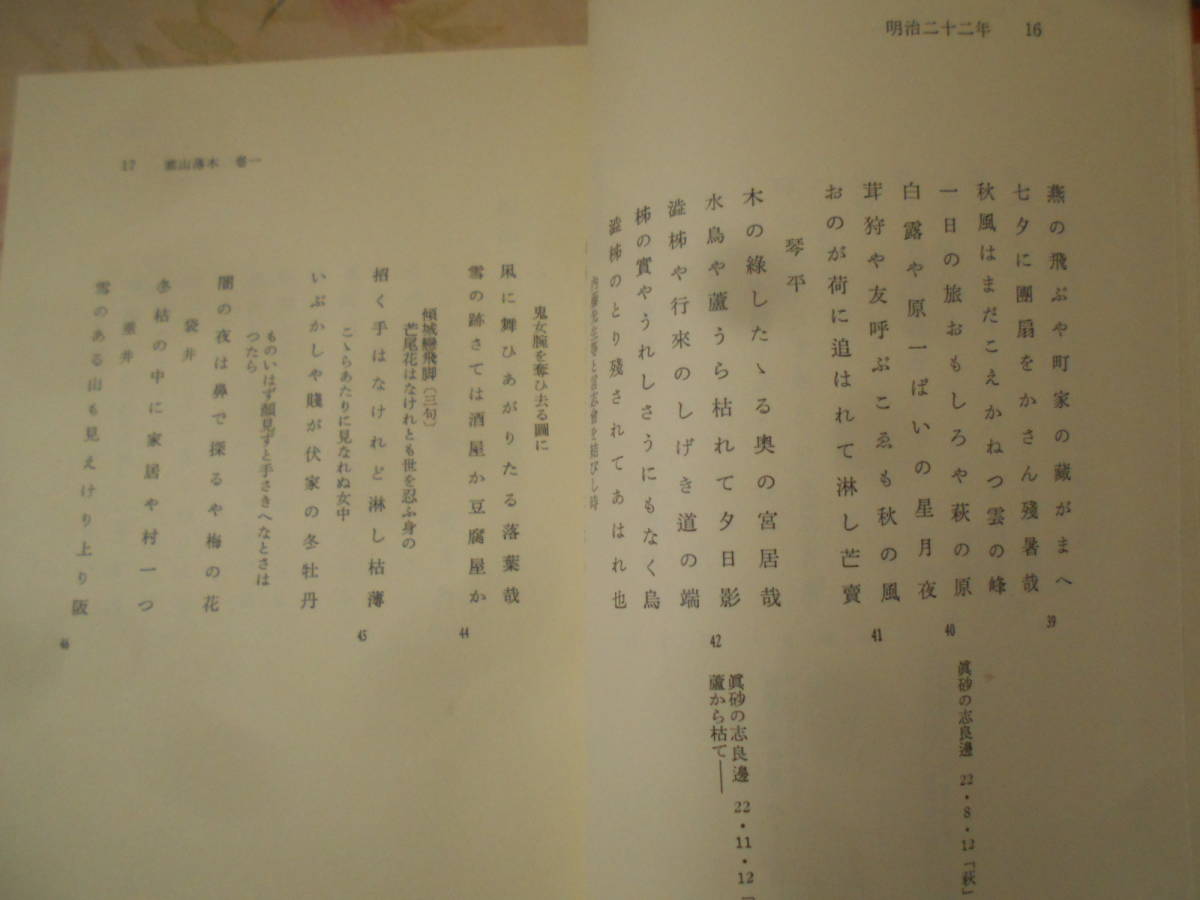 明治二十二年 16
燕の飛ぶや町家の藏がまへ
七夕に團扇をかさん殘暑哉
秋風はまだこえかねつ雲の峰
39
一日の旅おもしろや萩の原
40
眞砂の志良邊 22・8・12「萩」
白露や原一ぱいの星月夜
茸狩や友呼ぶこゑも秋の風
41
おのが荷に追はれて淋し芒賣
琴平
木の綠したゝる奥の宮居哉
水鳥や蘆うら枯れて夕日影
42
眞砂の志良邊 22・11・12
蘆から枯て──
澁柹や行來のしげき道の端
柹の實やうれしさうにもなく烏
澁柹のとり殘されてあはれ也
鬼女腕を奪ひ去る圖に
凩に舞ひあがりたる落葉哉
雪の跡さては酒屋か豆腐屋か
44
傾城戀飛脚〔三句〕
芒尾花はなけれとも世を忍ふ身の
招く手はなけれど淋し枯薄
45
こゝらあたりに見なれぬ女中
いぶかしや賤が伏家の冬牡丹
ものいはず顔見ずと手さきへなとさは
つたら
闇の夜は鼻で探るや梅の花
袋井
冬枯の中に家居や村一つ
垂井
雪のある山も見えけり上り阪
46
17 寒山落木 卷一